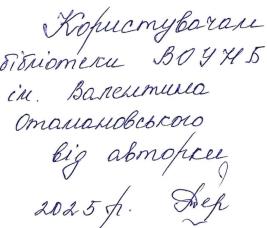 Користувачам
бібліотеки ВОУНБ
ім. Валентина
Отамановського
від авторки
2025 р.